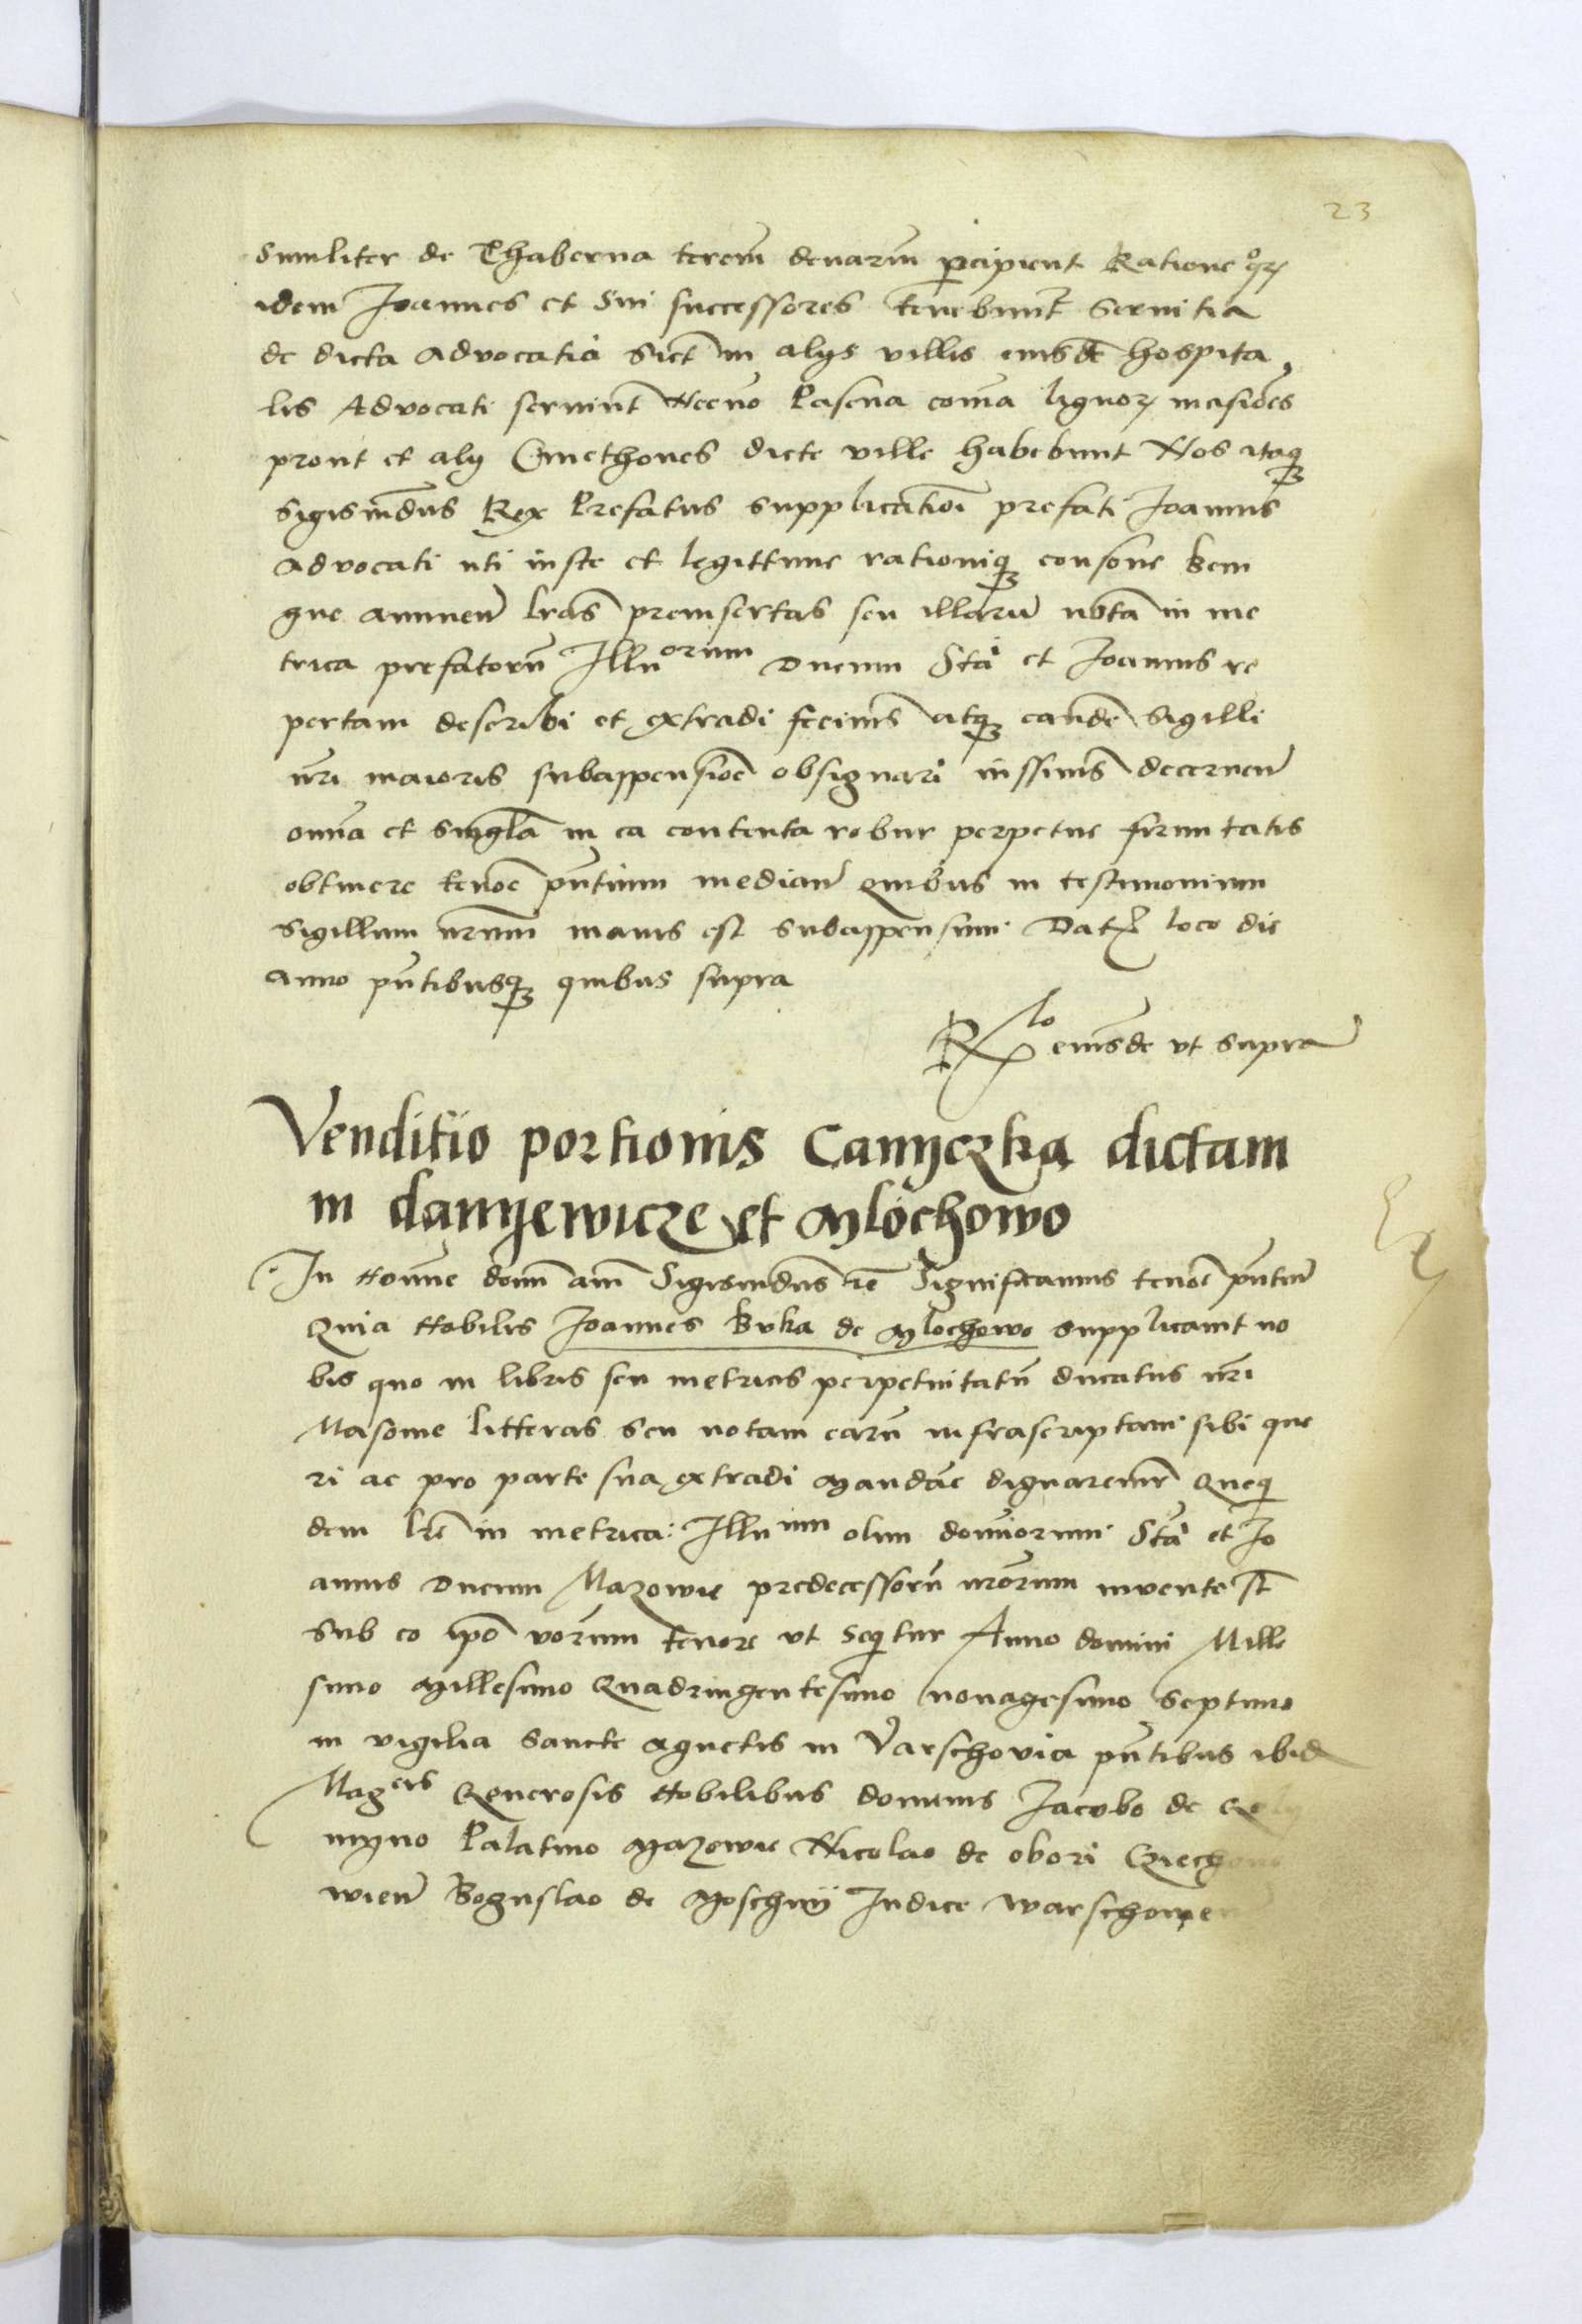 23
Similiter de Thaberna terciũ denariũ percipient Ratione quoꝝ
idem Joannes et Sui successores tenebunt̃ Servitia
de dicta advocatia sict̃ in alijs villis eiusdẽ hospita
lis Advocati serviũt Necno Pascua coĩa lignoꝝ incisiões
prout et alij Cmethones dicte ville habebunt Nos itaqꝫ
Sigismũdus Rex Prefatus supplicationi prefati Joannis
advocati uti iuste et legittime rationiqꝫ consone beni
gne annuen̄ lrãs preinsertas seu illarũ nõtã in me
trica prefatorũ Illuorum Ducum Sta et Joannis re
pertam describi et extradi fecimꝰ atqꝫ eandẽ Sigilli
nr̃i maioris subappensiõe obsignari iussimꝰ decernen̄
oĩa et singl̃a in ea contenta robur perpetue firmitatis
obtinere tenore pñtium median̄ Quibus in testimonium
Sigillum nr̃um maius est subappensum Dat loco die
anno pñtibusqꝫ quibus supra
Rlo eiusdẽ ut supra
Venditio portionis Canyczka dictam
in danyewicze et Mlochowo
In Noĩe domĩ amẽ Sigismũdus rẽ Significamus tenore pñtiũ
Quia Nobilis Joannes Buka de Mlochowo supplicavit no
bis quo in libris seu metricis perpetuitatũ ducatus nr̃i
Masovie litteras seu notam earũ infrascriptam sibi que
ri ac pro parte sua extradi Mandãe dignaremr̃ Queq
dem lrẽ in metrica Illuium olim dominorum Sta et Jo
annis Ducum Mazowie predecessorũ nr̃orum invente st̃
sub eo ipõ verborum tenore ut seqitur Anno domini Mille
simo Millesimo Quadringentesimo nonagesimo Septimo
in vigilia Sancte Agnetis in Varschovia pñtibus ibid
Magcis Generosis Nobilibus dominis Jacobo de
Palatino Mazowie Nicolao de obori
wien̄ Boguslao de Moschnÿ Judice Warschowien